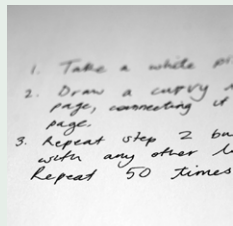 1. Take a white
2. Draw a curvy
page, connecting it
page.
3. Repeat step 2
with any other
Repeat 50 times